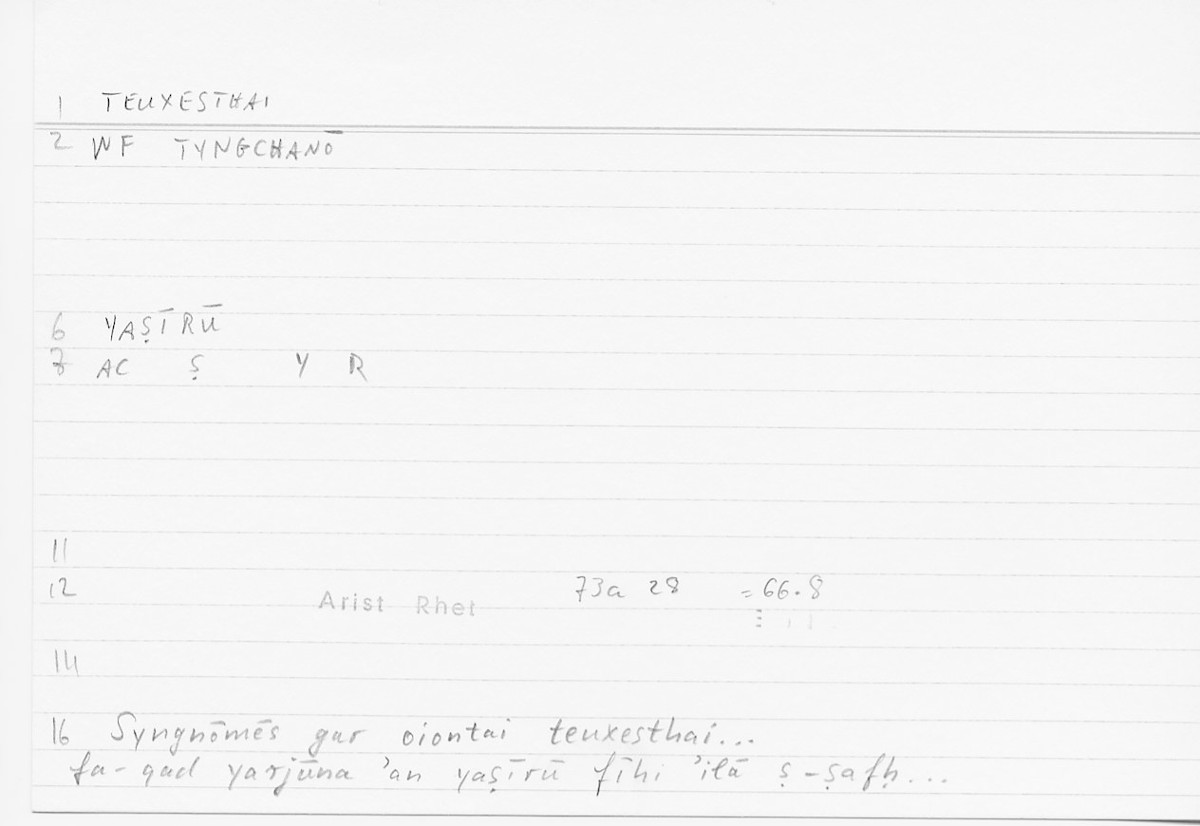 1 TEUXESTHAI
2 WF TYNGCHANŌ
6 YAṢĪRŪ
7 AC Ṣ Y R
11
12 Arist Rhet 73a 28 = 66.8
14
16 Syngnōmēs gar oiontai teuxesthai...
fa-qad yarjūna 'an yaṣīrū fīhi 'ilā ṣ-ṣafḥ...